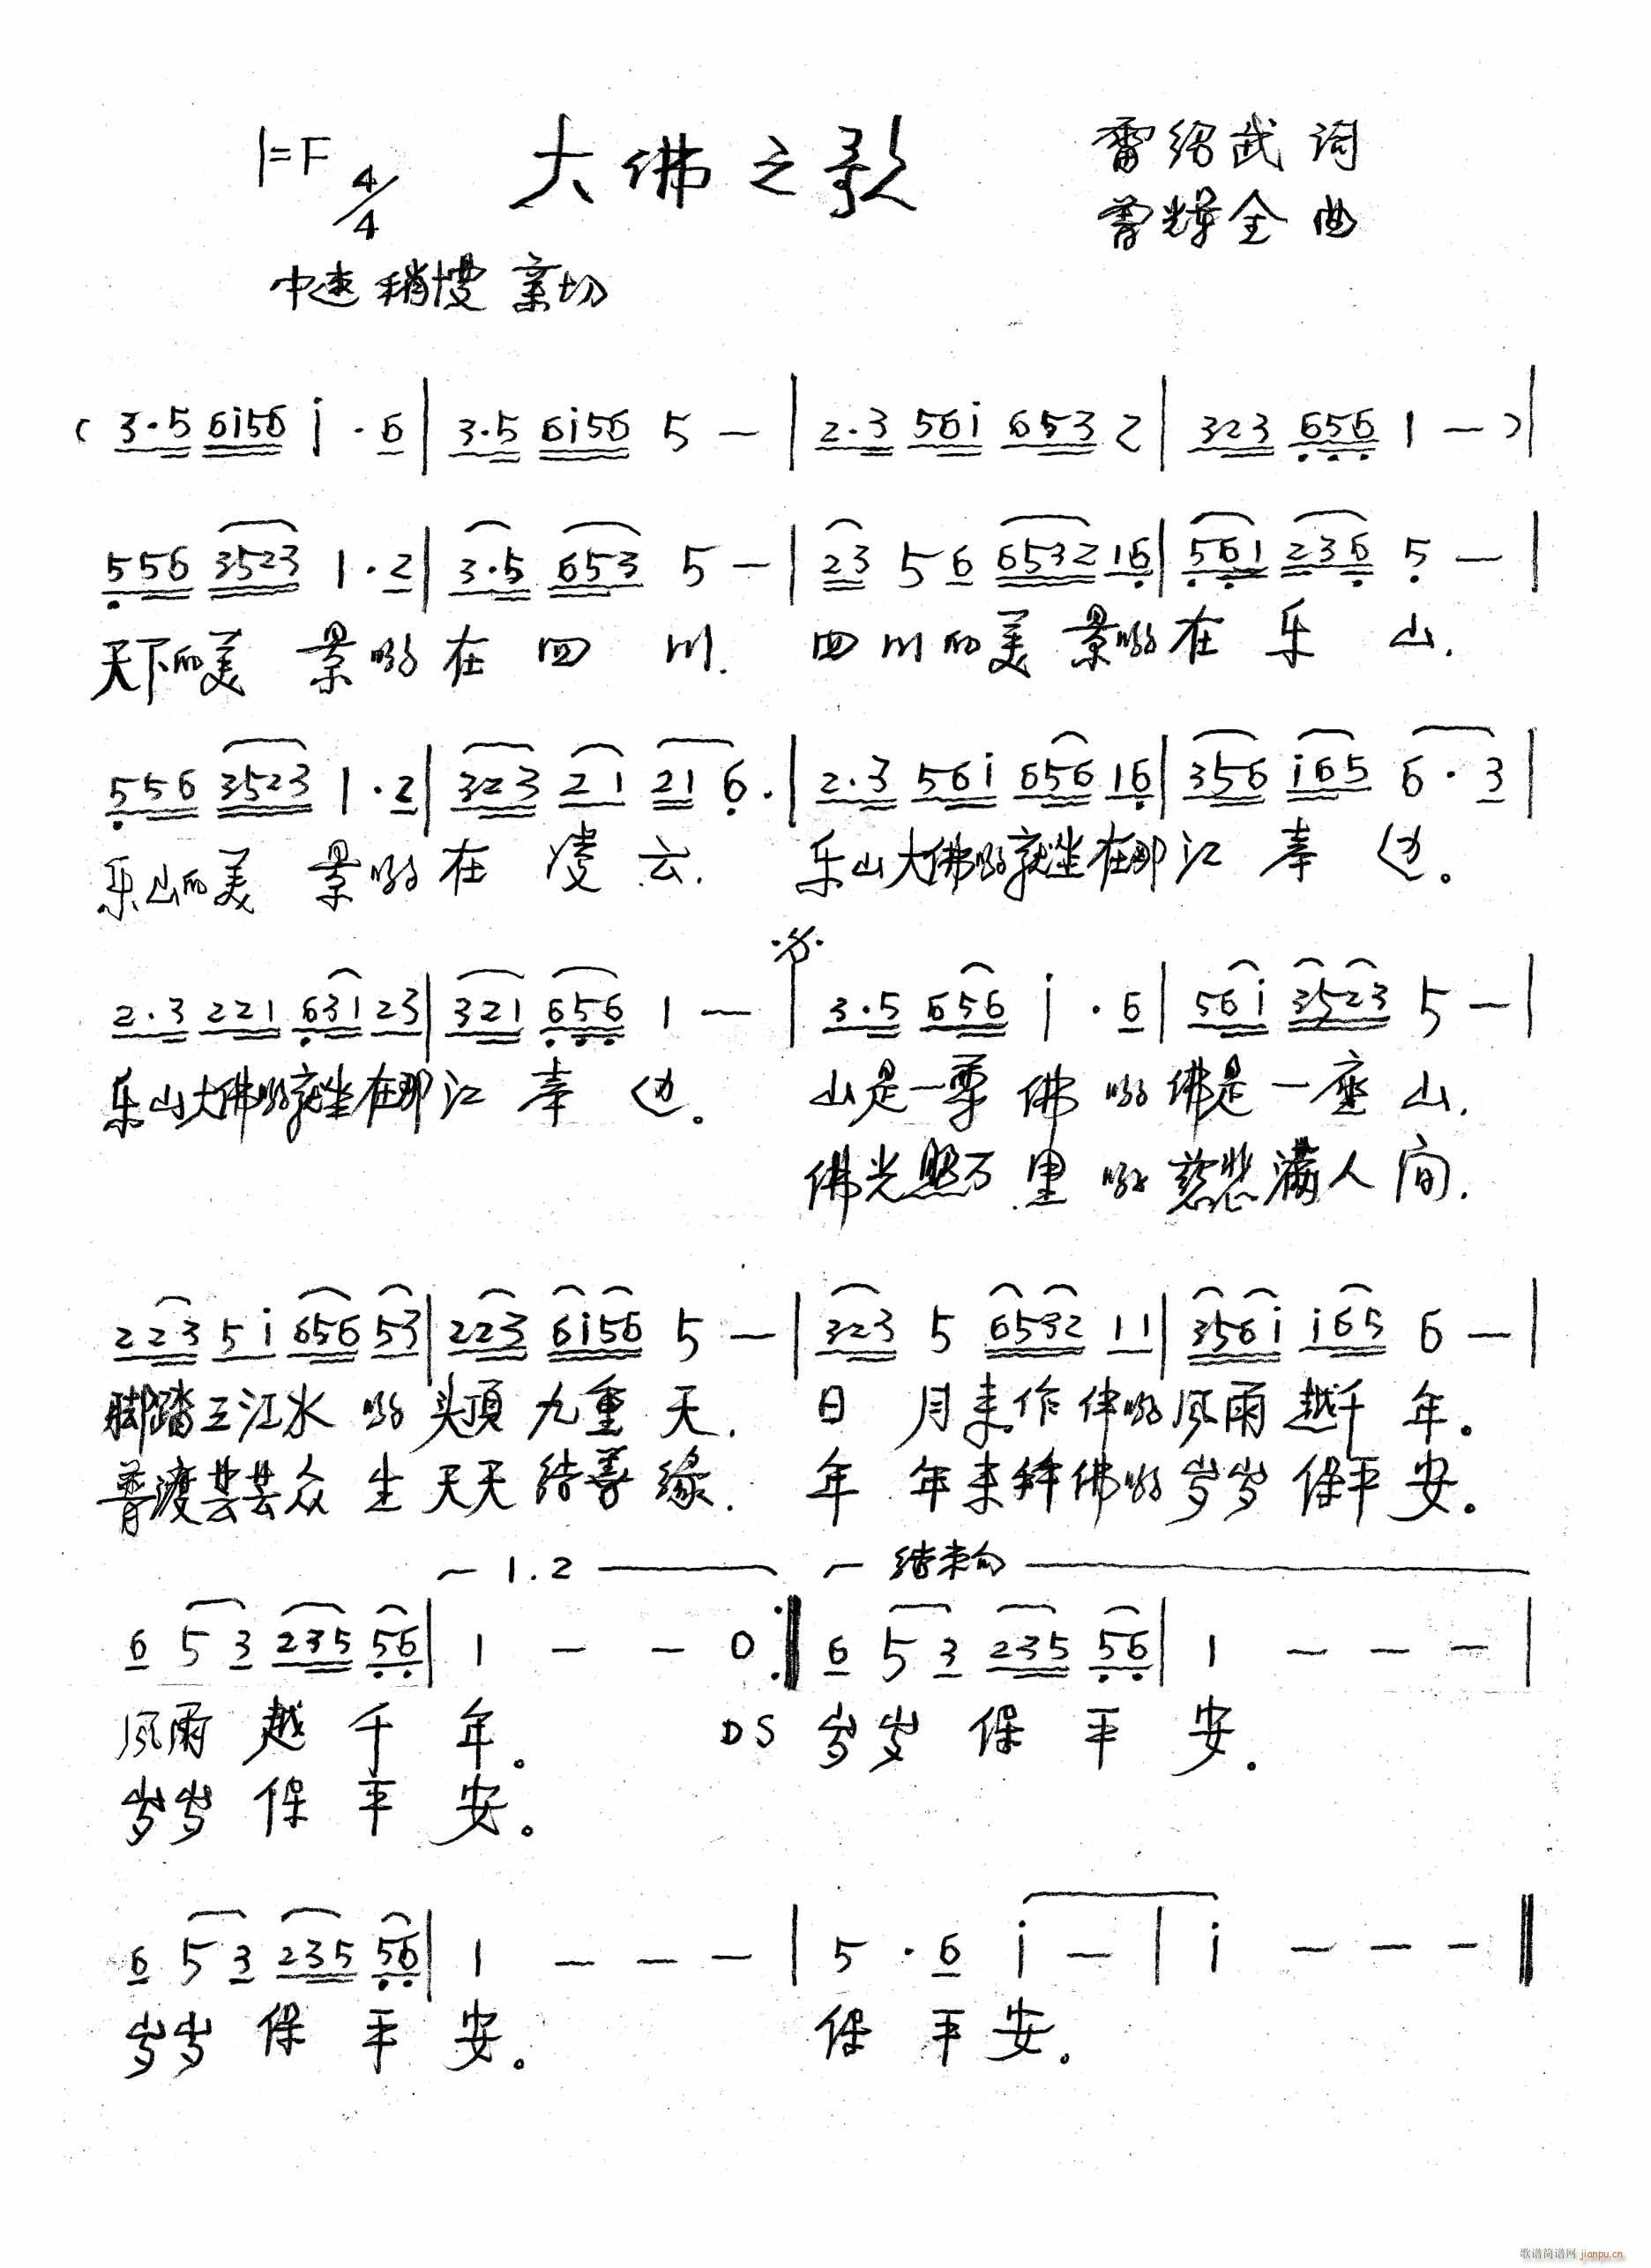 1=F 4/4 大佛之歌 雷绍武 词
曾辉全 曲
中速 稍慢 亲切
( 3·5 6i56 i · 6 | 3·5 6i56 5 — | 2·3 56i 653 2 | 323 656 1 — ) |
556 3523 1·2 | 3·5 653 5 — | 23 5 6 6532 16 | 561 236 5 — |
天下的美 景哟 在 四 川. 四川的美 景哟 在 乐 山.
556 3523 1·2 | 323 21 21 6. | 2·3 56i 656 16 | 356 i65 6·3 |
乐山的美 景哟 在 凌 云. 乐山大佛哟就坐在那 江 岸 边。
2·3 221 631 23 | 321 656 1 — | 3·5 656 i · 6 | 56i 3523 5 — |
乐山大佛哟就坐在那 江 岸 边。 山是一尊 佛 哟 佛是一座 山.
佛光照万 里 哟 慈悲满人 间.
223 5i 656 53 | 223 6i56 5 — | 323 5 6532 11 | 356i i65 6 — |
脚踏三江水 哟 头顶 九重 天. 日 月来作伴哟 风雨 越千 年。
普渡芸芸众 生 天天 结善 缘. 年 年来拜佛哟 岁岁 保平 安。
1.2 结束句
6 5 3 235 56 | 1 — — 0 :| 6 5 3 235 56 | 1 — — — |
风雨 越 千 年。 DS 岁岁 保 平 安.
岁岁 保 平 安。
6 5 3 235 56 | 1 — — — | 5 · 6 i — | i — — — ‖
岁岁 保 平 安。 保 平 安。
歌谱简谱网 jianpu.cn